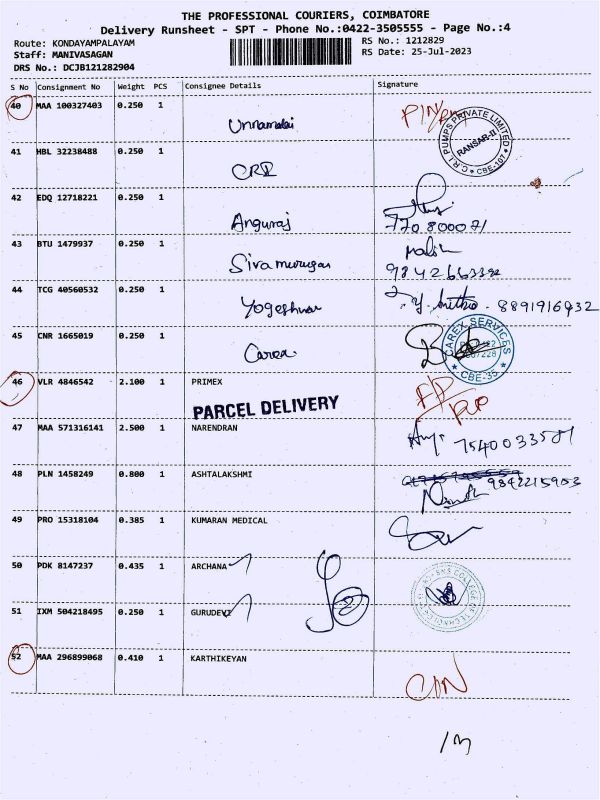 THE PROFESSIONAL COURIERS, COIMBATORE
Delivery Runsheet - SPT - Phone No.:0422-3505555 - Page No.:4
Route: KONDAYAMPALAYAM RS No.: 1212829
Staff: MANIVASAGAN RS Date: 25-Jul-2023
DRS No.: DCJB121282904
S No Consignment No Weight PCS Consignee Details Signature
40 MAA 100327403 0.250 1
C.R.I. PUMPS PRIVATE LIMITED RANSAR-II CBE-107
41 HBL 32238488 0.250 1 CRI
42 EDQ 12718221 0.250 1 Anguraj
43 BTU 1479937 0.250 1 Sivamurugan
44 TCG 40560532 0.250 1 Yogeshwar 8891916932
45 CNR 1665019 0.250 1 Carex
CAREX SERVICES CBE-35
46 VLR 4846542 2.100 1 PRIMEX
PARCEL DELIVERY
47 MAA 571316141 2.500 1 NARENDRAN
48 PLN 1458249 0.800 1 ASHTALAKSHMI 9842215903
49 PRO 15318104 0.385 1 KUMARAN MEDICAL
50 PDK 8147237 0.435 1 ARCHANA
51 IXM 504218495 0.250 1 GURUDEVI
52 MAA 296899068 0.410 1 KARTHIKEYAN